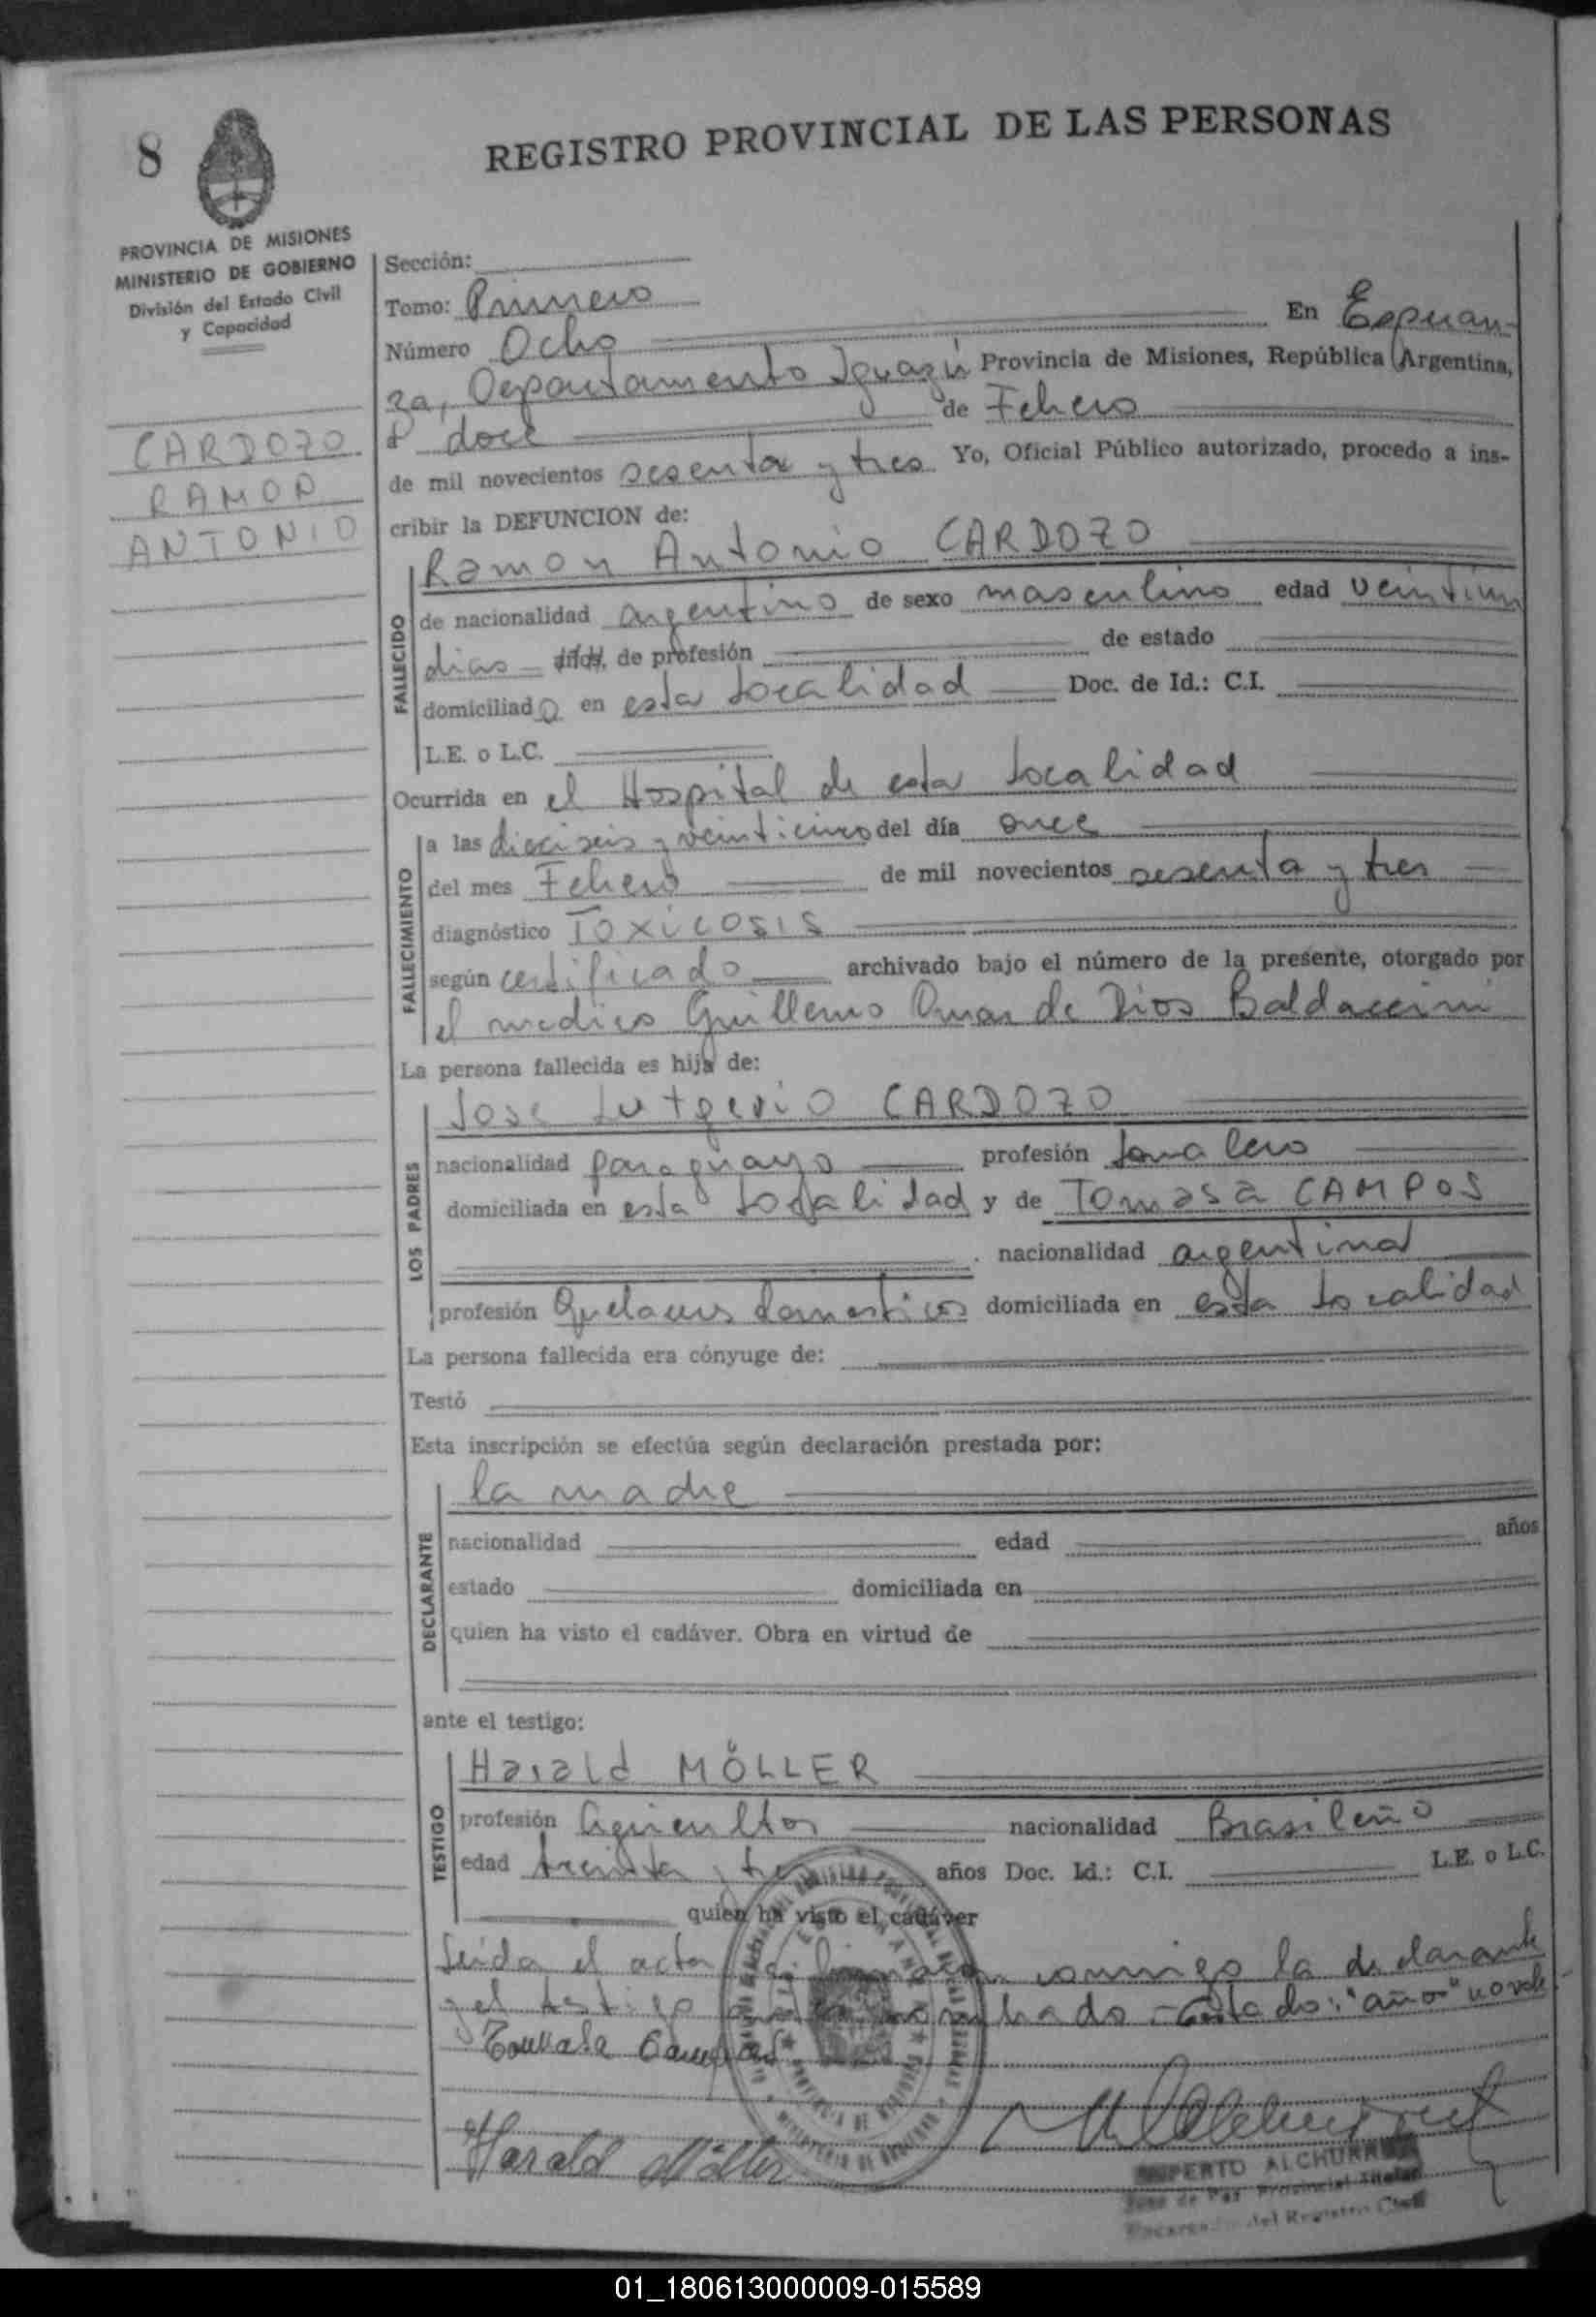 8
REGISTRO PROVINCIAL DE LAS PERSONAS
PROVINCIA DE MISIONES
MINISTERIO DE GOBIERNO
División del Estado Civil
y Capacidad
CARDOZO
RAMON
ANTONIO
Sección:
Tomo: Primero
Número Ocho En Esperan-
za, Departamento Iguazú Provincia de Misiones, República Argentina,
a doce de Febrero
de mil novecientos sesenta y tres Yo, Oficial Público autorizado, procedo a ins-
cribir la DEFUNCION de:
Ramon Antonio CARDOZO
FALLECIDO
de nacionalidad argentino de sexo masculino edad veintiun
dias años, de profesión de estado
domiciliado en esta localidad Doc. de Id.: C.I.
L.E. o L.C.
Ocurrida en el Hospital de esta localidad
FALLECIMIENTO
a las dieciseis y veinticinco del día once
del mes Febrero de mil novecientos sesenta y tres
diagnóstico TOXICOSIS
según certificado archivado bajo el número de la presente, otorgado por
el medico Guillermo Omar de Dios Baldaccini
La persona fallecida es hijo de:
LOS PADRES
Jose Lutgerio CARDOZO
nacionalidad paraguayo profesión Jornalero
domiciliada en esta localidad y de Tomasa CAMPOS
nacionalidad argentina
profesión Quehaceres domesticos domiciliada en esta localidad
La persona fallecida era cónyuge de:
Testó
Esta inscripción se efectúa según declaración prestada por:
DECLARANTE
la madre
nacionalidad edad años
estado domiciliada en
quien ha visto el cadáver. Obra en virtud de
ante el testigo:
TESTIGO
Harald MÖLLER
profesión Agricultor nacionalidad Brasileño
edad treinta y tres años Doc. Id.: C.I. L.E. o L.C.
quien ha visto el cadáver
Leida el acta conmigo la declarante
y el testigo nombrado.- "año" no vale
Tomasa Campos
Harald Möller
RUPERTO ALCHURRUT
Juez de Paz Provincial Titular
Encargado del Registro Civil
01_180613000009-015589